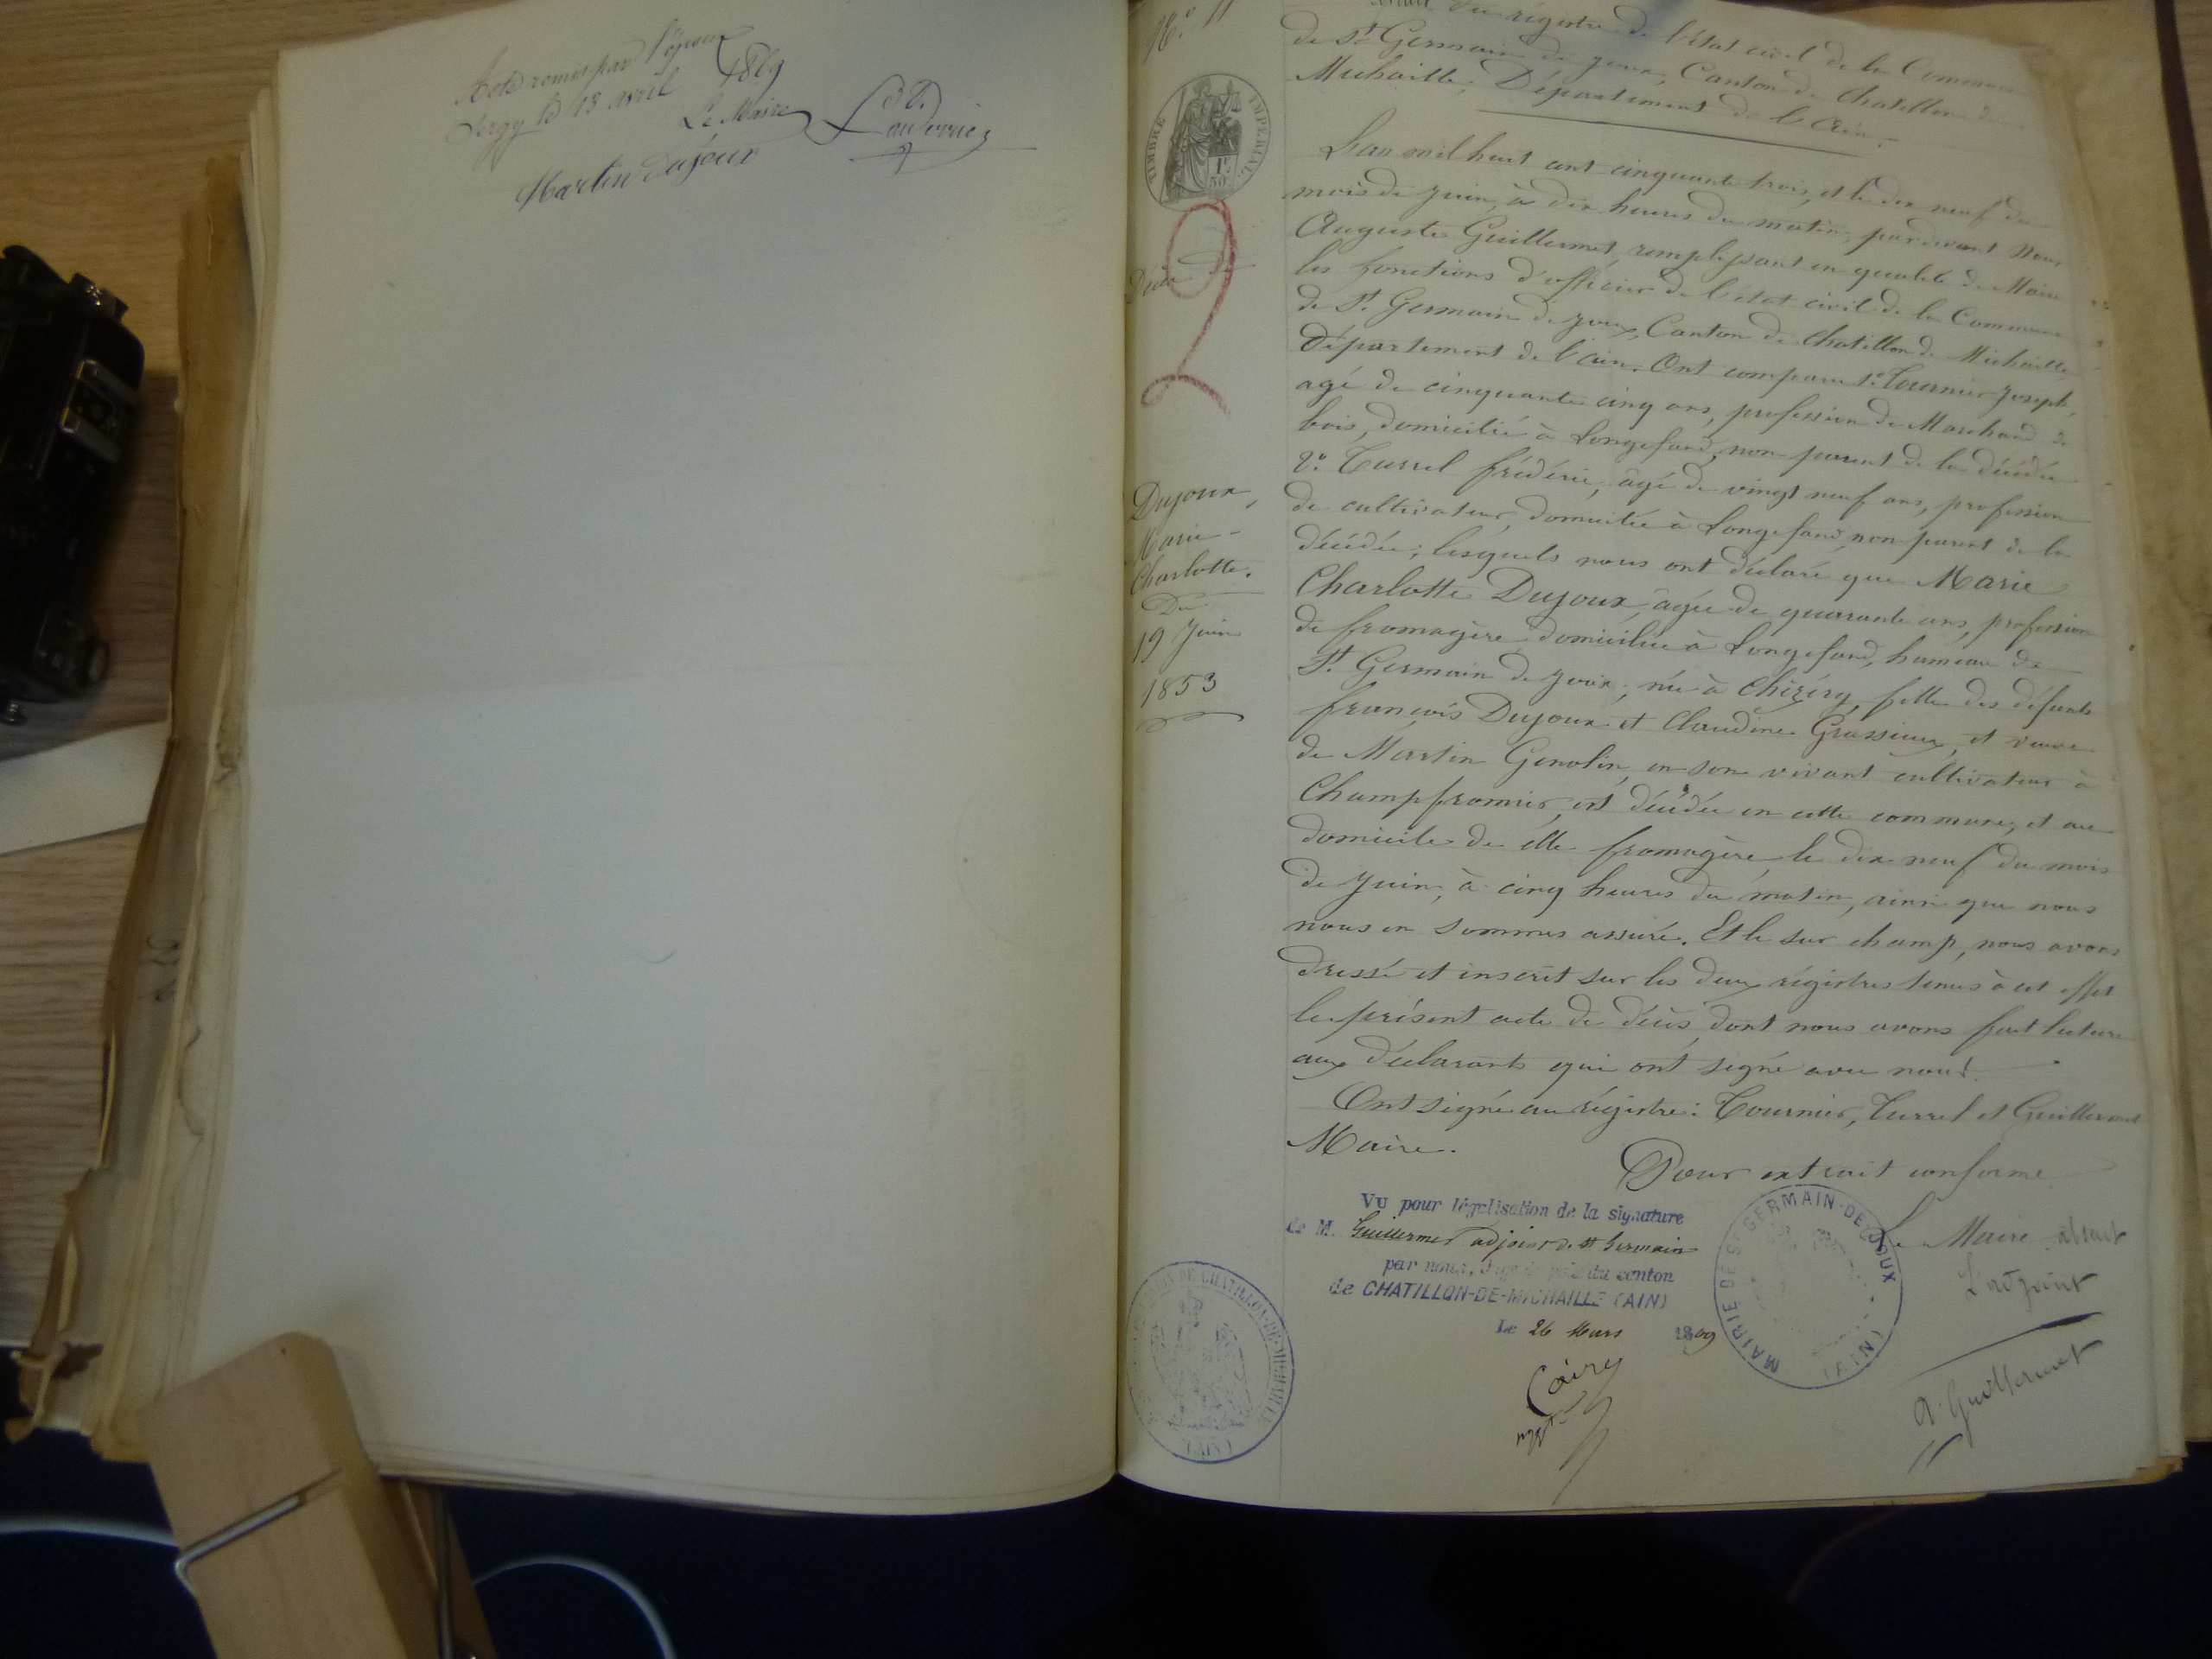 Acte remis par l'époux
Sergy le 13 avril 1869
Le Maire
Martin Dujoux
N.º 11
TIMBRE IMPERIAL
1F
50C
2
Décès de
Dujoux,
Marie-
Charlotte.
Du
19 Juin
1853
du régistre de l'état civil de la Commune
de St Germain de joux, Canton de Chatillon de
Michaille, Département de l'Ain.
L'an mil huit cent cinquante trois, et le dix neuf du
mois de juin, à dix heures du matin, pardevant Nous
Auguste Guillermet, remplissant en qualité de Maire
les fonctions d'officier de l'état civil de la Commune
de St. Germain de joux, Canton de Chatillon de Michaille,
Département de l'ain. Ont comparu 1º Tournier Joseph,
agé de cinquante cinq ans, profession de Marchand de
bois, domicilié à Longefand, non parent de la décédée
2º. Turrel frédéric, agé de vingt neuf ans, profession
de cultivateur, domicilié à Longefand, non parent de la
décédée; lesquels nous ont déclaré que Marie
Charlotte Dujoux, agée de quarante ans, profession
de fromagère, domiciliée à Longefand, hameau de
St Germain de joux, née à Chézéry, fille des défunts
françois Dujoux et Claudine Grossiux, et veuve
de Martin Genolin, en son vivant cultivateur à
Champfromier, est décédée en cette commune, et au
domicile de elle fromagère, le dix neuf du mois
de juin, à cinq heures du matin, ainsi que nous
nous en sommes assuré. Et le sur champ, nous avons
dressé et inscrit sur les deux régistres tenus à cet effet
le présent acte de décès, dont nous avons fait lecture
aux déclarants qui ont signé avec nous.
Ont signé au régistre: Tournier, Turrel et Guillermet
Maire.
Pour extrait conforme
Le Maire absent
L'adjoint
A. Guillermet
VU pour légalisation de la signature
de M. Guillermet adjoint de St Germain
par nous, Juge de paix du canton
de CHATILLON-DE-MICHAILLE (AIN)
Le 26 Mars 1869
MAIRIE DE ST GERMAIN-DE-JOUX
(AIN)
DE CHATILLON-DE-MICHAILLE
(AIN)